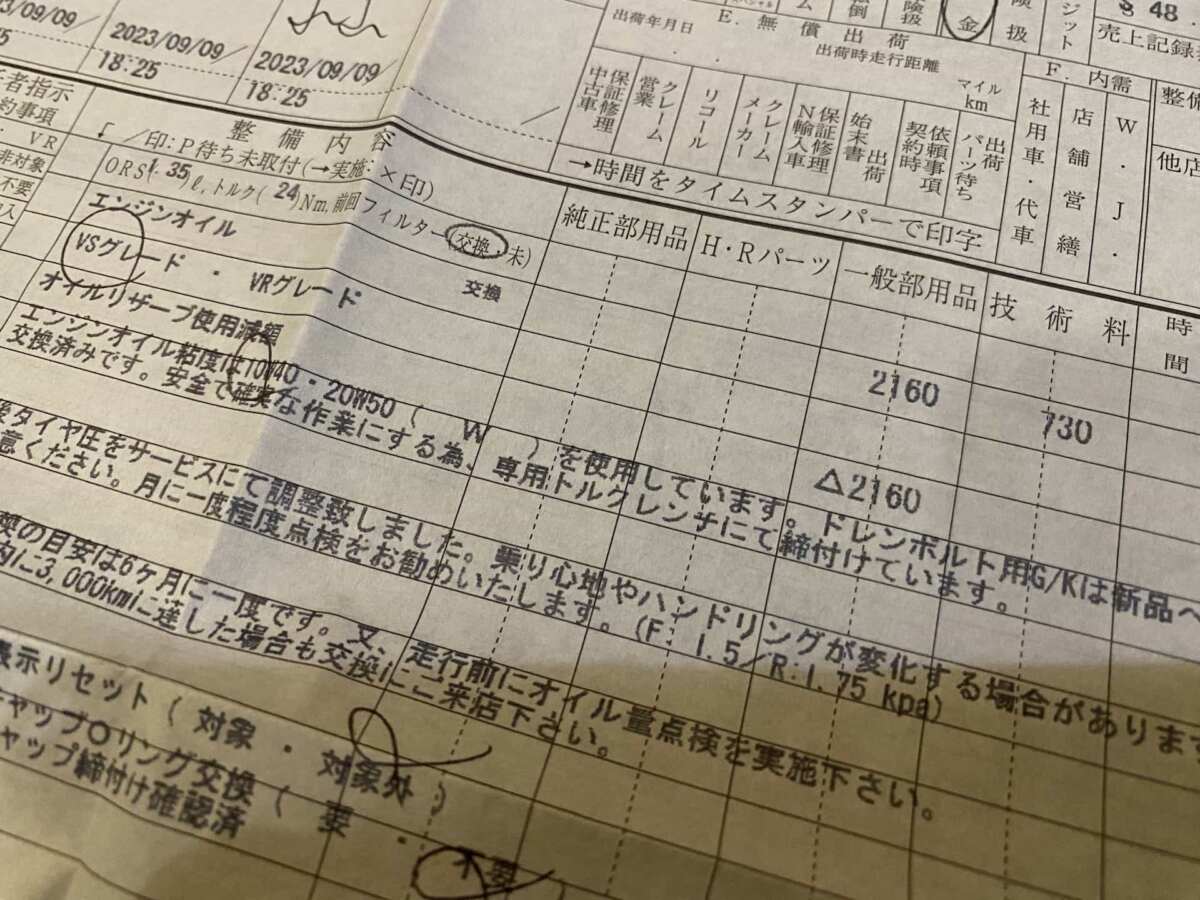 2023/09/09/
18:25
2023/09/09/
18:25
E. 無償出荷
出荷年月日
出荷時走行距離
マイル
km
F. 内需
売上記録
8 48
保証修理
中古車
営業
クレーム
リコール
クレーム
メーカー
保証修理
N輸入車
始末書
出荷
依頼事項
契約時
出荷
パーツ待ち
社用車・代車
店舗営繕
W.J.
→時間をタイムスタンパーで印字
者指示
約事項
整備内容
VR
/印:P待ち未取付(→実施:×印)
非対象
ORS(4.35)ℓ,トルク(24)Nm,前回フィルター(交換・未)
不要
エンジンオイル 交換
純正部用品
H・Rパーツ
一般部用品
技術料
時間
VSグレード ・ VRグレード
2160
730
オイルリザーブ使用減額
△2160
エンジンオイル粘度は10W40・20W50( W )を使用しています。ドレンボルト用G/Kは新品へ
交換済みです。安全で確実な作業にする為、専用トルクレンチにて締付けています。
後タイヤ圧をサービスにて調整致しました。乗り心地やハンドリングが変化する場合があります
意ください。月に一度程度点検をお勧めいたします。(F:1.5/R:1.75 kpa)
換の目安は6ヶ月に一度です。又、走行前にオイル量点検を実施下さい。
内に3,000kmに達した場合も交換にご来店下さい。
表示リセット( 対象 ・ 対象外 )
キャップOリング交換( 要 ・ 不要
ャップ締付け確認済